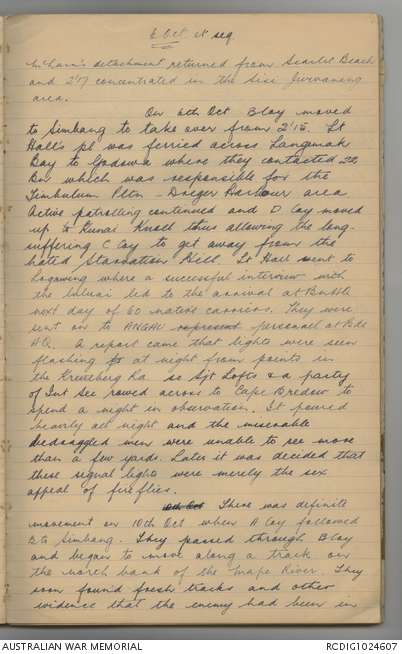 6 Oct et seq
McLarn's detachment returned from Scarlet Beach
and 2'17 concentrated in the Sisi Jivevaneng
area.
On 6th Oct B Coy moved
to Simbang to take over from 2'15. Lt
Hall's pl was ferried across Langemak
Bay to Godowa where they contacted 22
Bn which was responsible for the
Timbulum Pltn - Dreger Harbour area
Active patrolling continued and D Coy moved
up to Kunai Knoll thus allowing the long-
suffering C Coy to get away from the
hated Starvation Hill. Lt Hall went to
Logaweng where a successful interview with
the luluai led to the arrival at BnHQ
next day of 60 native carriers. They were
sent on to ANGAU represent personnel at Bde
HQ. A report came that lights were seen
flashing at night from points in
the Kreutberg Ra so Sgt Lofts & a party
of Int Sec rowed across to Cape Bredow to
spend a night in observation. It poured
heavily all night and the miserable
bedraggled men were unable to see more
than a few yards. Later it was decided that
these signal lights were merely the sex
appeal of fireflies.
10th Oct There was definite
movement on 10th Oct when A Coy followed
B to Simbang. They passed through B Coy
and began to move along a track on
the north bank of the Mape River. They
soon found fresh tracks and other
evidence that the enemy had been in
AUSTRALIAN WAR MEMORIAL
RCDIG1024607